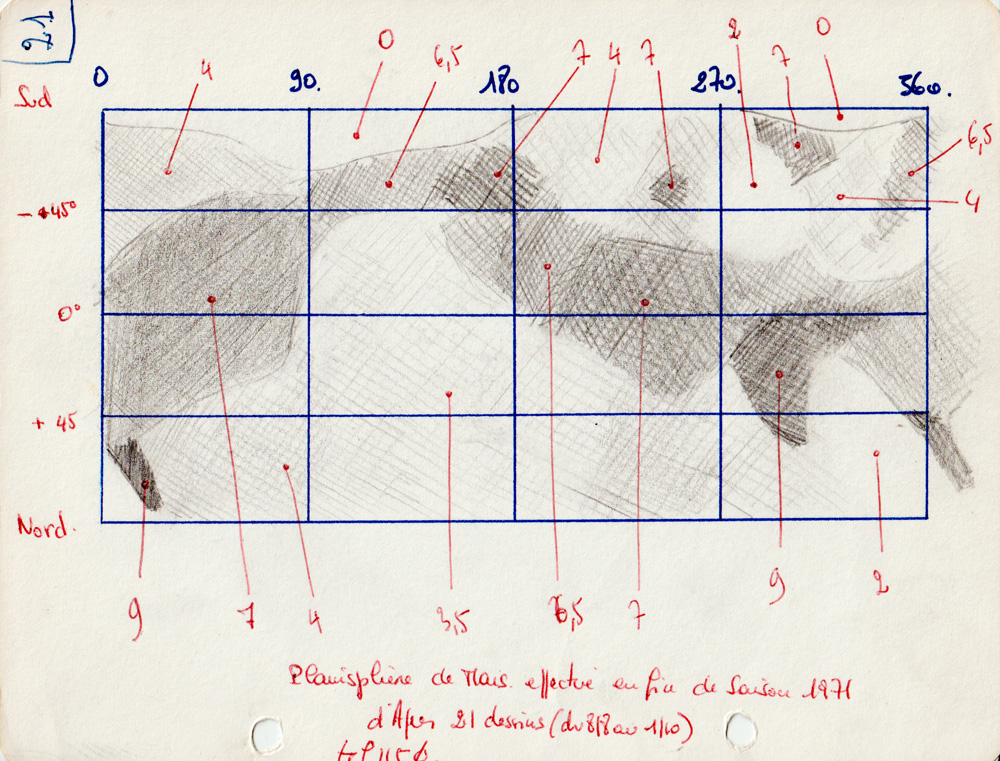 21
0 4 6,5 7 4 7 2 7 0
0 90. 180 270. 360.
Sud
6,5
- 45°
4
0°
+ 45
Nord.
9 7 4 3,5 6,5 7 9 2
Planisphère de Mars effectué en fin de Saison 1971
d'Après 21 dessins (du 8/8 au 1/10)